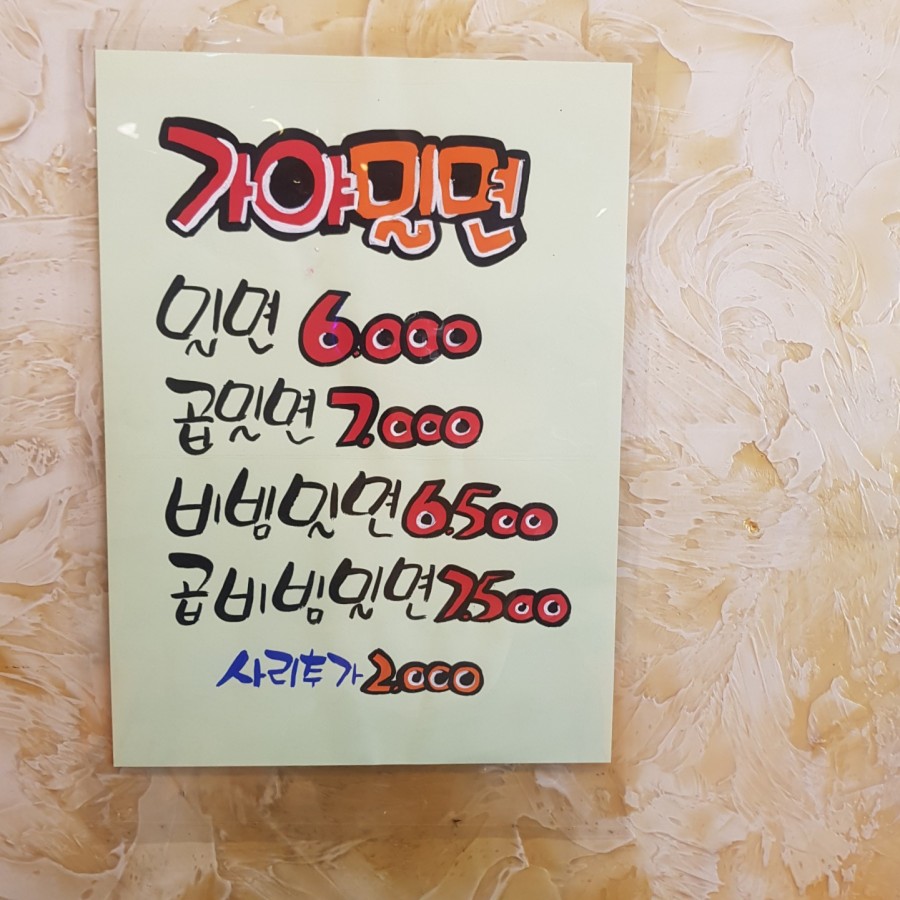 가야밀면
밀면 6.000
곱밀면 7.000
비빔밀면 6.500
곱비빔밀면 7.500
사리추가 2.000